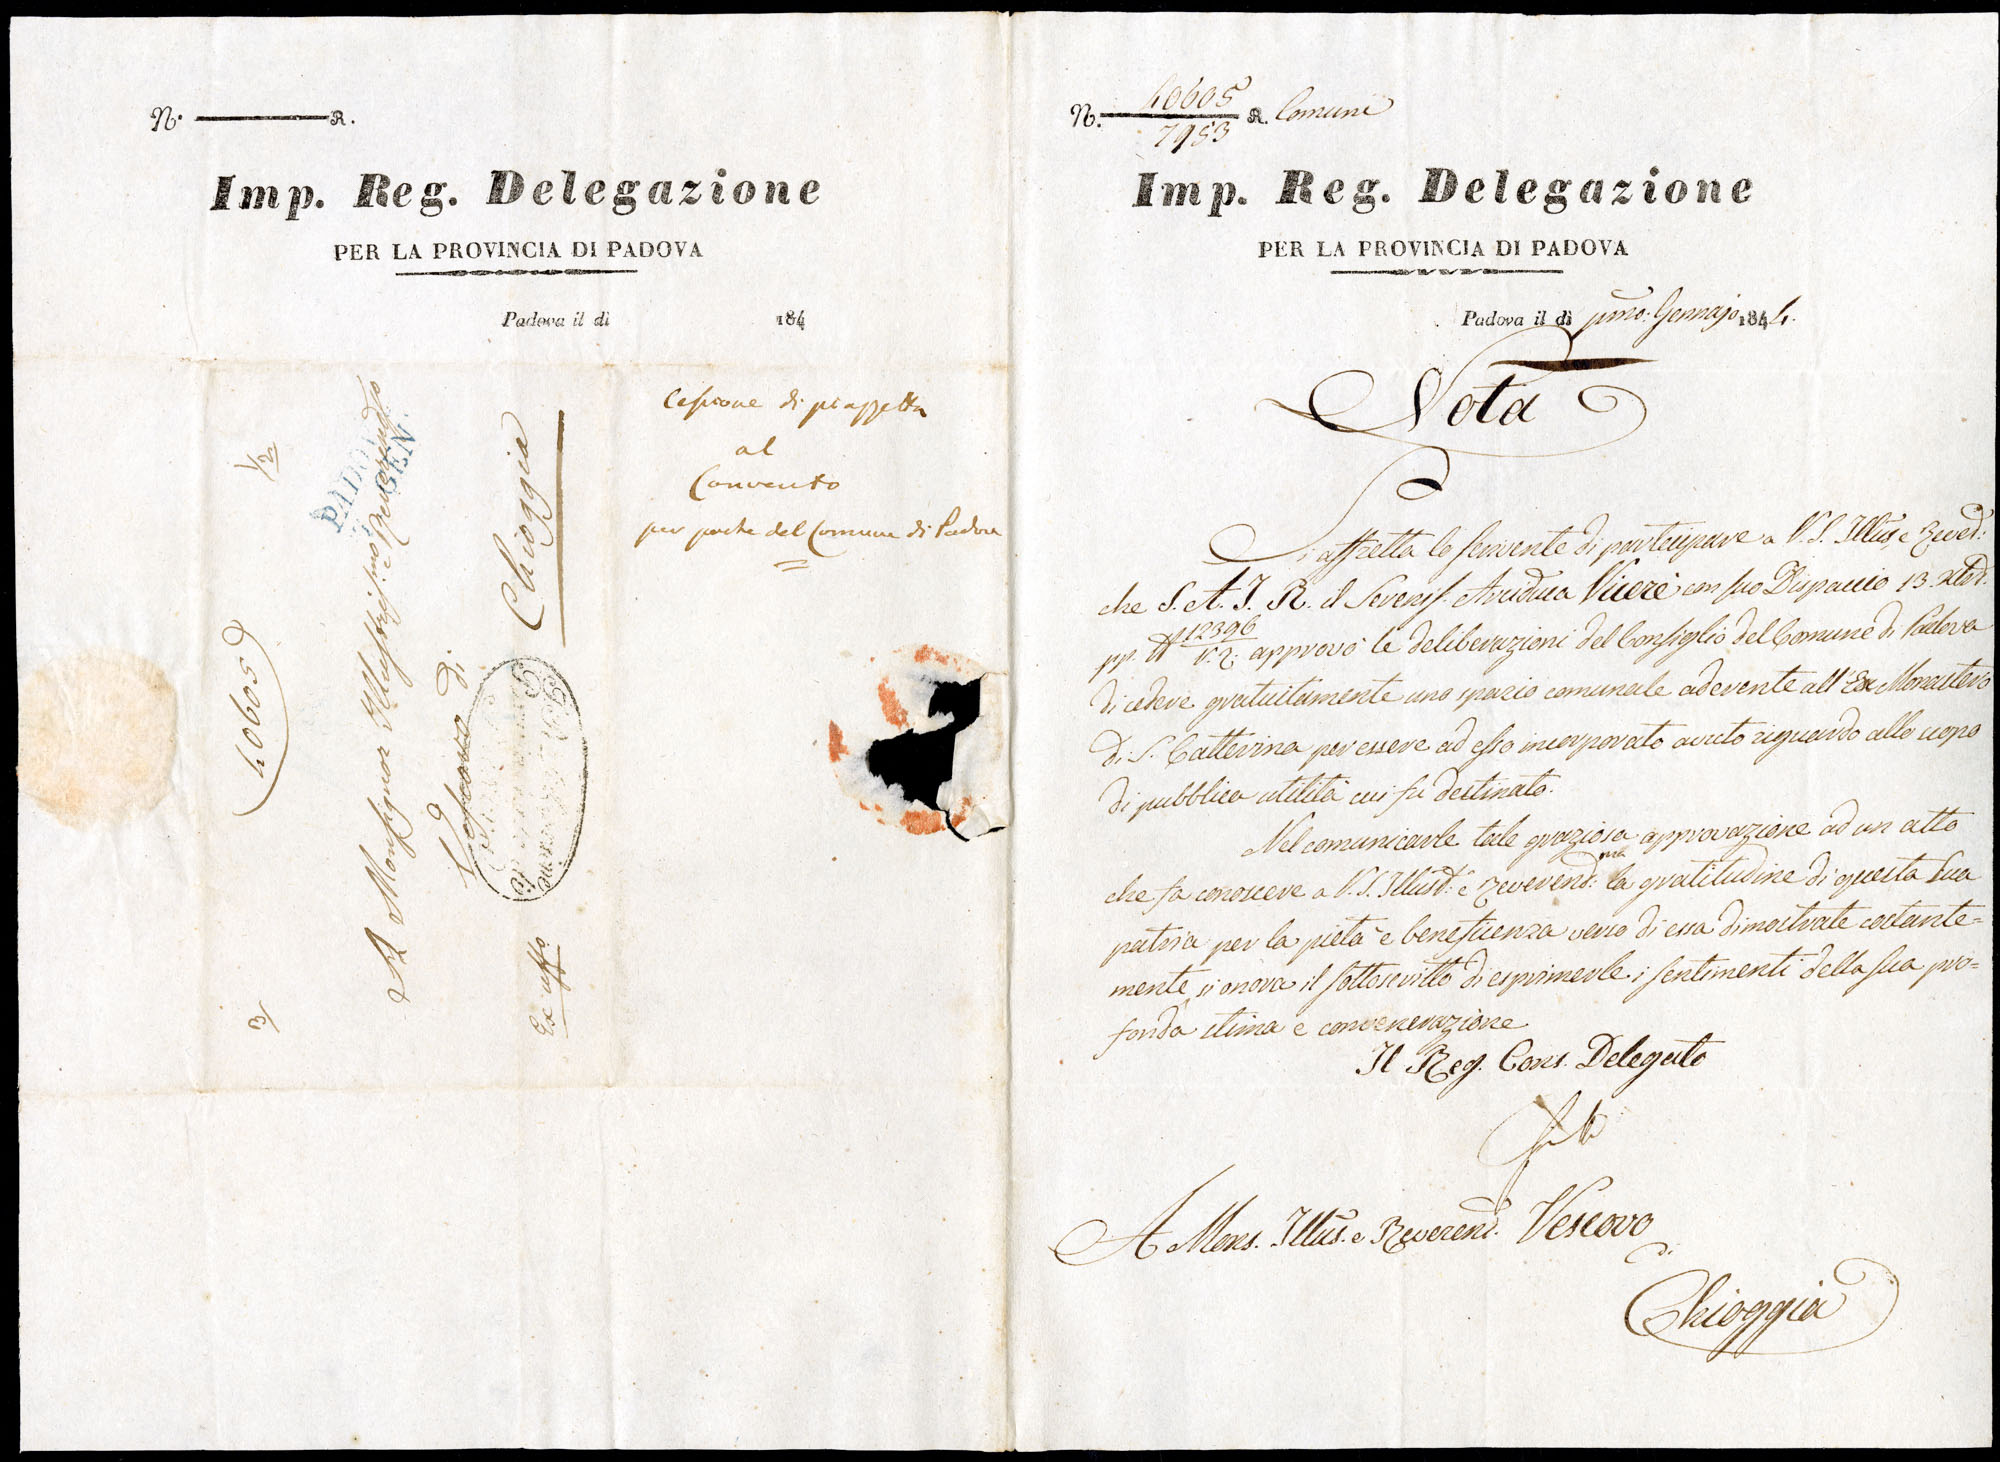 N. R.
Imp. Reg. Delegazione
PER LA PROVINCIA DI PADOVA
Padova il dì 184
Cessione di piazzetta
al
Convento
per parte del Comune di Padova
1/2
40605
3/
PADOVA
GEN
A Monsignor Illustriss.mo e Reverendo
Vescovo di
Chioggia
Ex uffo
N. 40605 R. Comuni
7953
Imp. Reg. Delegazione
PER LA PROVINCIA DI PADOVA
Padova il dì pmo: Gennajo 1844.
Nota
Si affretta lo scrivente di partecipare a V. S. Illus. e Reved:
che S. A. I. R. il Sereniss. Arciduca Vicerè con suo Dispaccio 13 Xbre
pp. N 12396 / V. 2. approvò le deliberazioni del Consiglio del Comune di Padova
di cedere gratuitamente uno spazio comunale aderente all'Ex Monastero
di S. Catterina per essere ad esso incorporato avuto riguardo allo scopo
di pubblica utilità cui fu destinato.
Nel comunicarle tale graziosa approvazione ad un atto
che fa conoscere a V. S. Illust: e Reverend:ma la gratitudine di questa Sua
patria per la pietà e beneficienza verso di essa dimostrate costante=
mente, si onora il sottoscritto di esprimerle i sentimenti della sua pro=
fonda stima e convenerazione
Il Reg. Cons. Delegato
A Mons. Illus. e Reverend. Vescovo
di
Chioggia